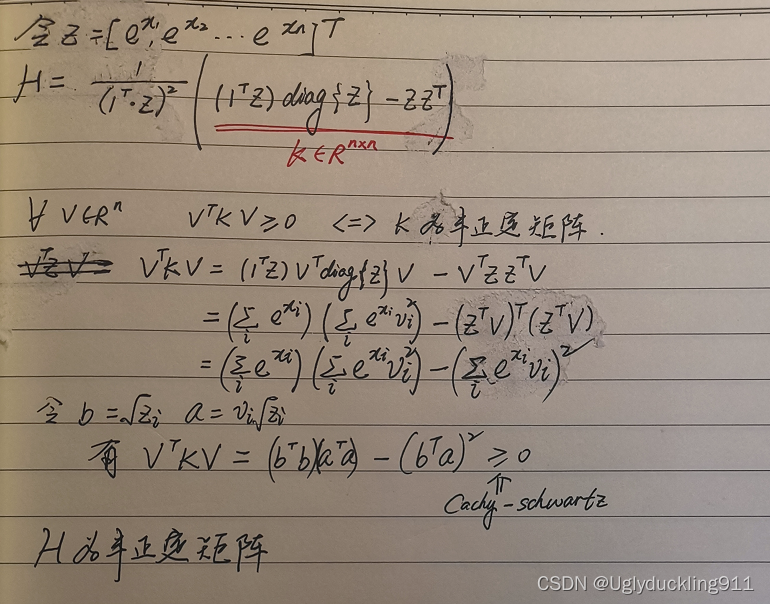 令 z = [e^{x_1}, e^{x_2} ... e^{x_n}]T
H = 1/(1^T·z)^2 ((1^T z) diag{z} - zz^T)
K ∈ R^{n×n}
∀ v ∈ R^n v^T K v ≥ 0 <=> K 为半正定矩阵.
v^T K v = (1^T z) v^T diag{z} v - v^T z z^T v
= (∑_i e^{x_i}) (∑_i e^{x_i} v_i^2) - (z^T v)^T (z^T v)
= (∑_i e^{x_i}) (∑_i e^{x_i} v_i^2) - (∑_i e^{x_i} v_i)^2
令 b = √z_i a = v_i√z_i
有 v^T K v = (b^T b)(a^T a) - (b^T a)^2 ≥ 0
⇑
Cachy-schwartz
H 为半正定矩阵
CSDN @Uglyduckling911